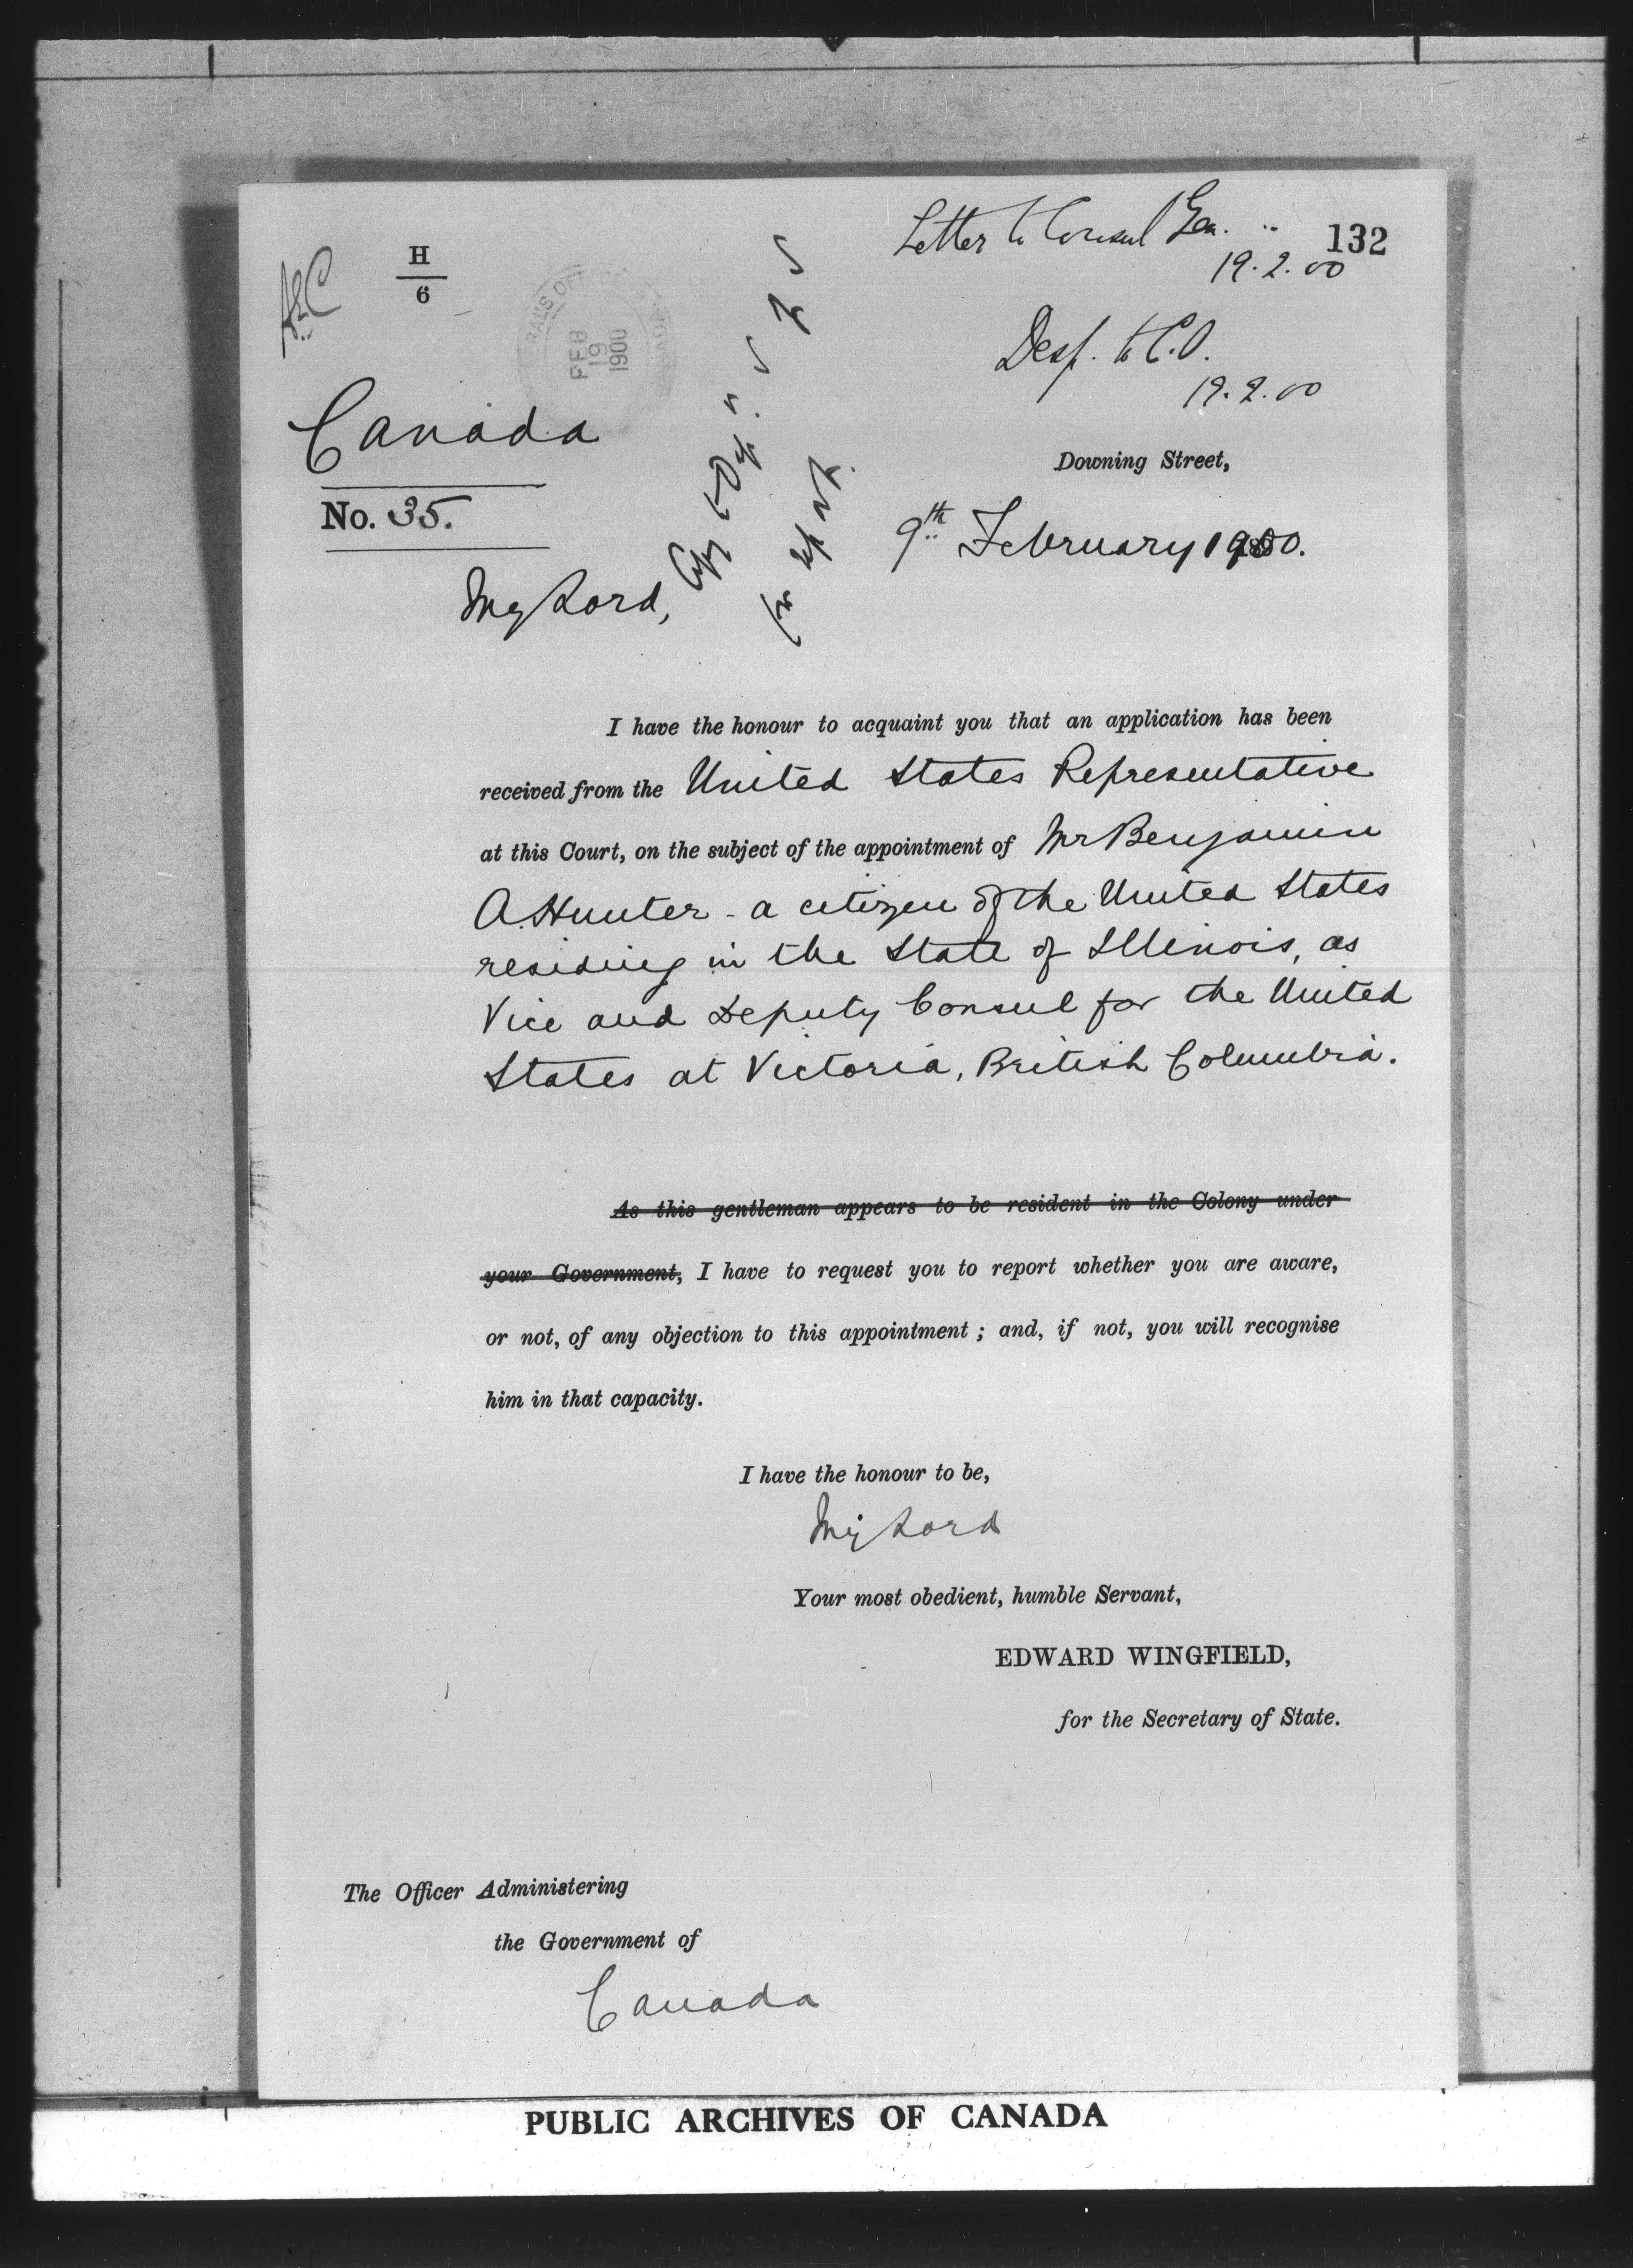 Letter to Consul Gen. 132
19.2.00
H
6
FEB
19
1900
Desp. to C.O.
19.2.00
Canada
Downing Street,
No. 35.
9th February 1900.
My Lord,
I have the honour to acquaint you that an application has been
received from the United States Representative
at this Court, on the subject of the appointment of Mr Benjamin
A. Hunter - a citizen of the United States
residing in the State of Illinois, as
Vice and Deputy Consul for the United
States at Victoria, British Columbia.
As this gentleman appears to be resident in the Colony under
your Government, I have to request you to report whether you are aware,
or not, of any objection to this appointment ; and, if not, you will recognise
him in that capacity.
I have the honour to be,
My Lord
Your most obedient, humble Servant,
EDWARD WINGFIELD,
for the Secretary of State.
The Officer Administering
the Government of
Canada
PUBLIC ARCHIVES OF CANADA